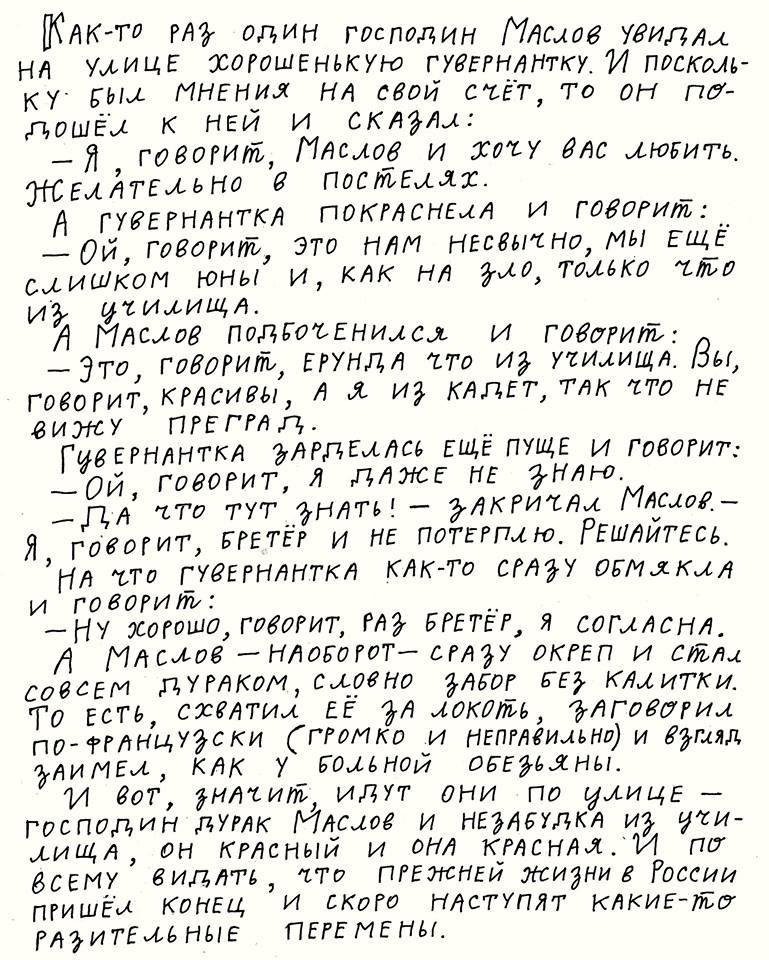 Как-то раз один господин Маслов увидал
на улице хорошенькую гувернантку. И посколь-
ку был мнения на свой счёт, то он по-
дошёл к ней и сказал:
— Я, говорит, Маслов и хочу вас любить.
Желательно в постелях.
А гувернантка покраснела и говорит:
— Ой, говорит, это нам несвычно, мы ещё
слишком юны и, как на зло, только что
из училища.
А Маслов подбоченился и говорит:
— Это, говорит, ерунда что из училища. Вы,
говорит, красивы, а я из кадет, так что не
вижу преград.
Гувернантка зарделась ещё пуще и говорит:
— Ой, говорит, я даже не знаю.
— Да что тут знать! — закричал Маслов. —
Я, говорит, бретёр и не потерплю. Решайтесь.
На что гувернантка как-то сразу обмякла
и говорит:
— Ну хорошо, говорит, раз бретёр, я согласна.
А Маслов — наоборот — сразу окреп и стал
совсем дураком, словно забор без калитки.
То есть, схватил её за локоть, заговорил
по-французски (громко и неправильно) и взгляд
заимел, как у больной обезьяны.
И вот, значит, идут они по улице —
господин дурак Маслов и незабудка из учи-
лища, он красный и она красная. И по
всему видать, что прежней жизни в России
пришёл конец и скоро наступят какие-то
разительные перемены.